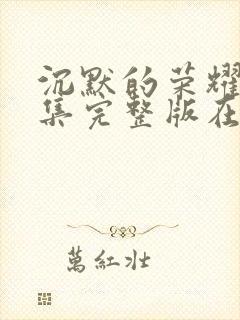 沉默的荣耀
集完整版在
萬紅壮